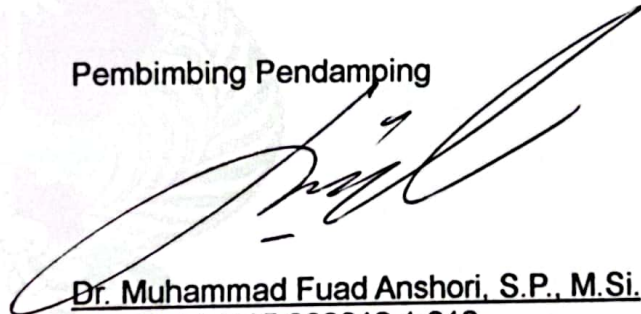 Pembimbing Pendamping
Dr. Muhammad Fuad Anshori, S.P., M.Si.